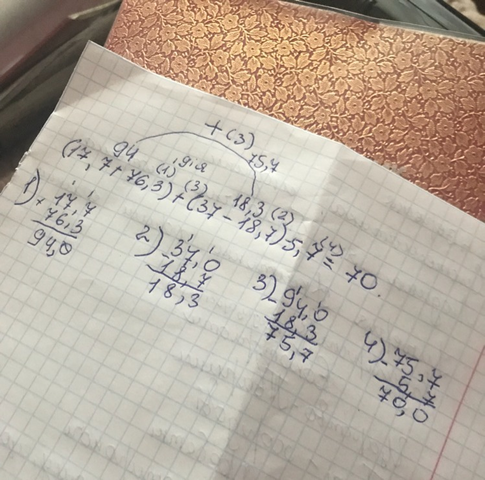 +(3)
94 (1) 19,2 75,4
(17,7+76,3)+(37-18,7)5,7=70.
(3) 18,3 (2) (4)
1) +17,7
76,3
94,0
2) -37,0
18,7
18,3
3) -94,0
18,3
75,7
4) -75,7
5,7
70,0